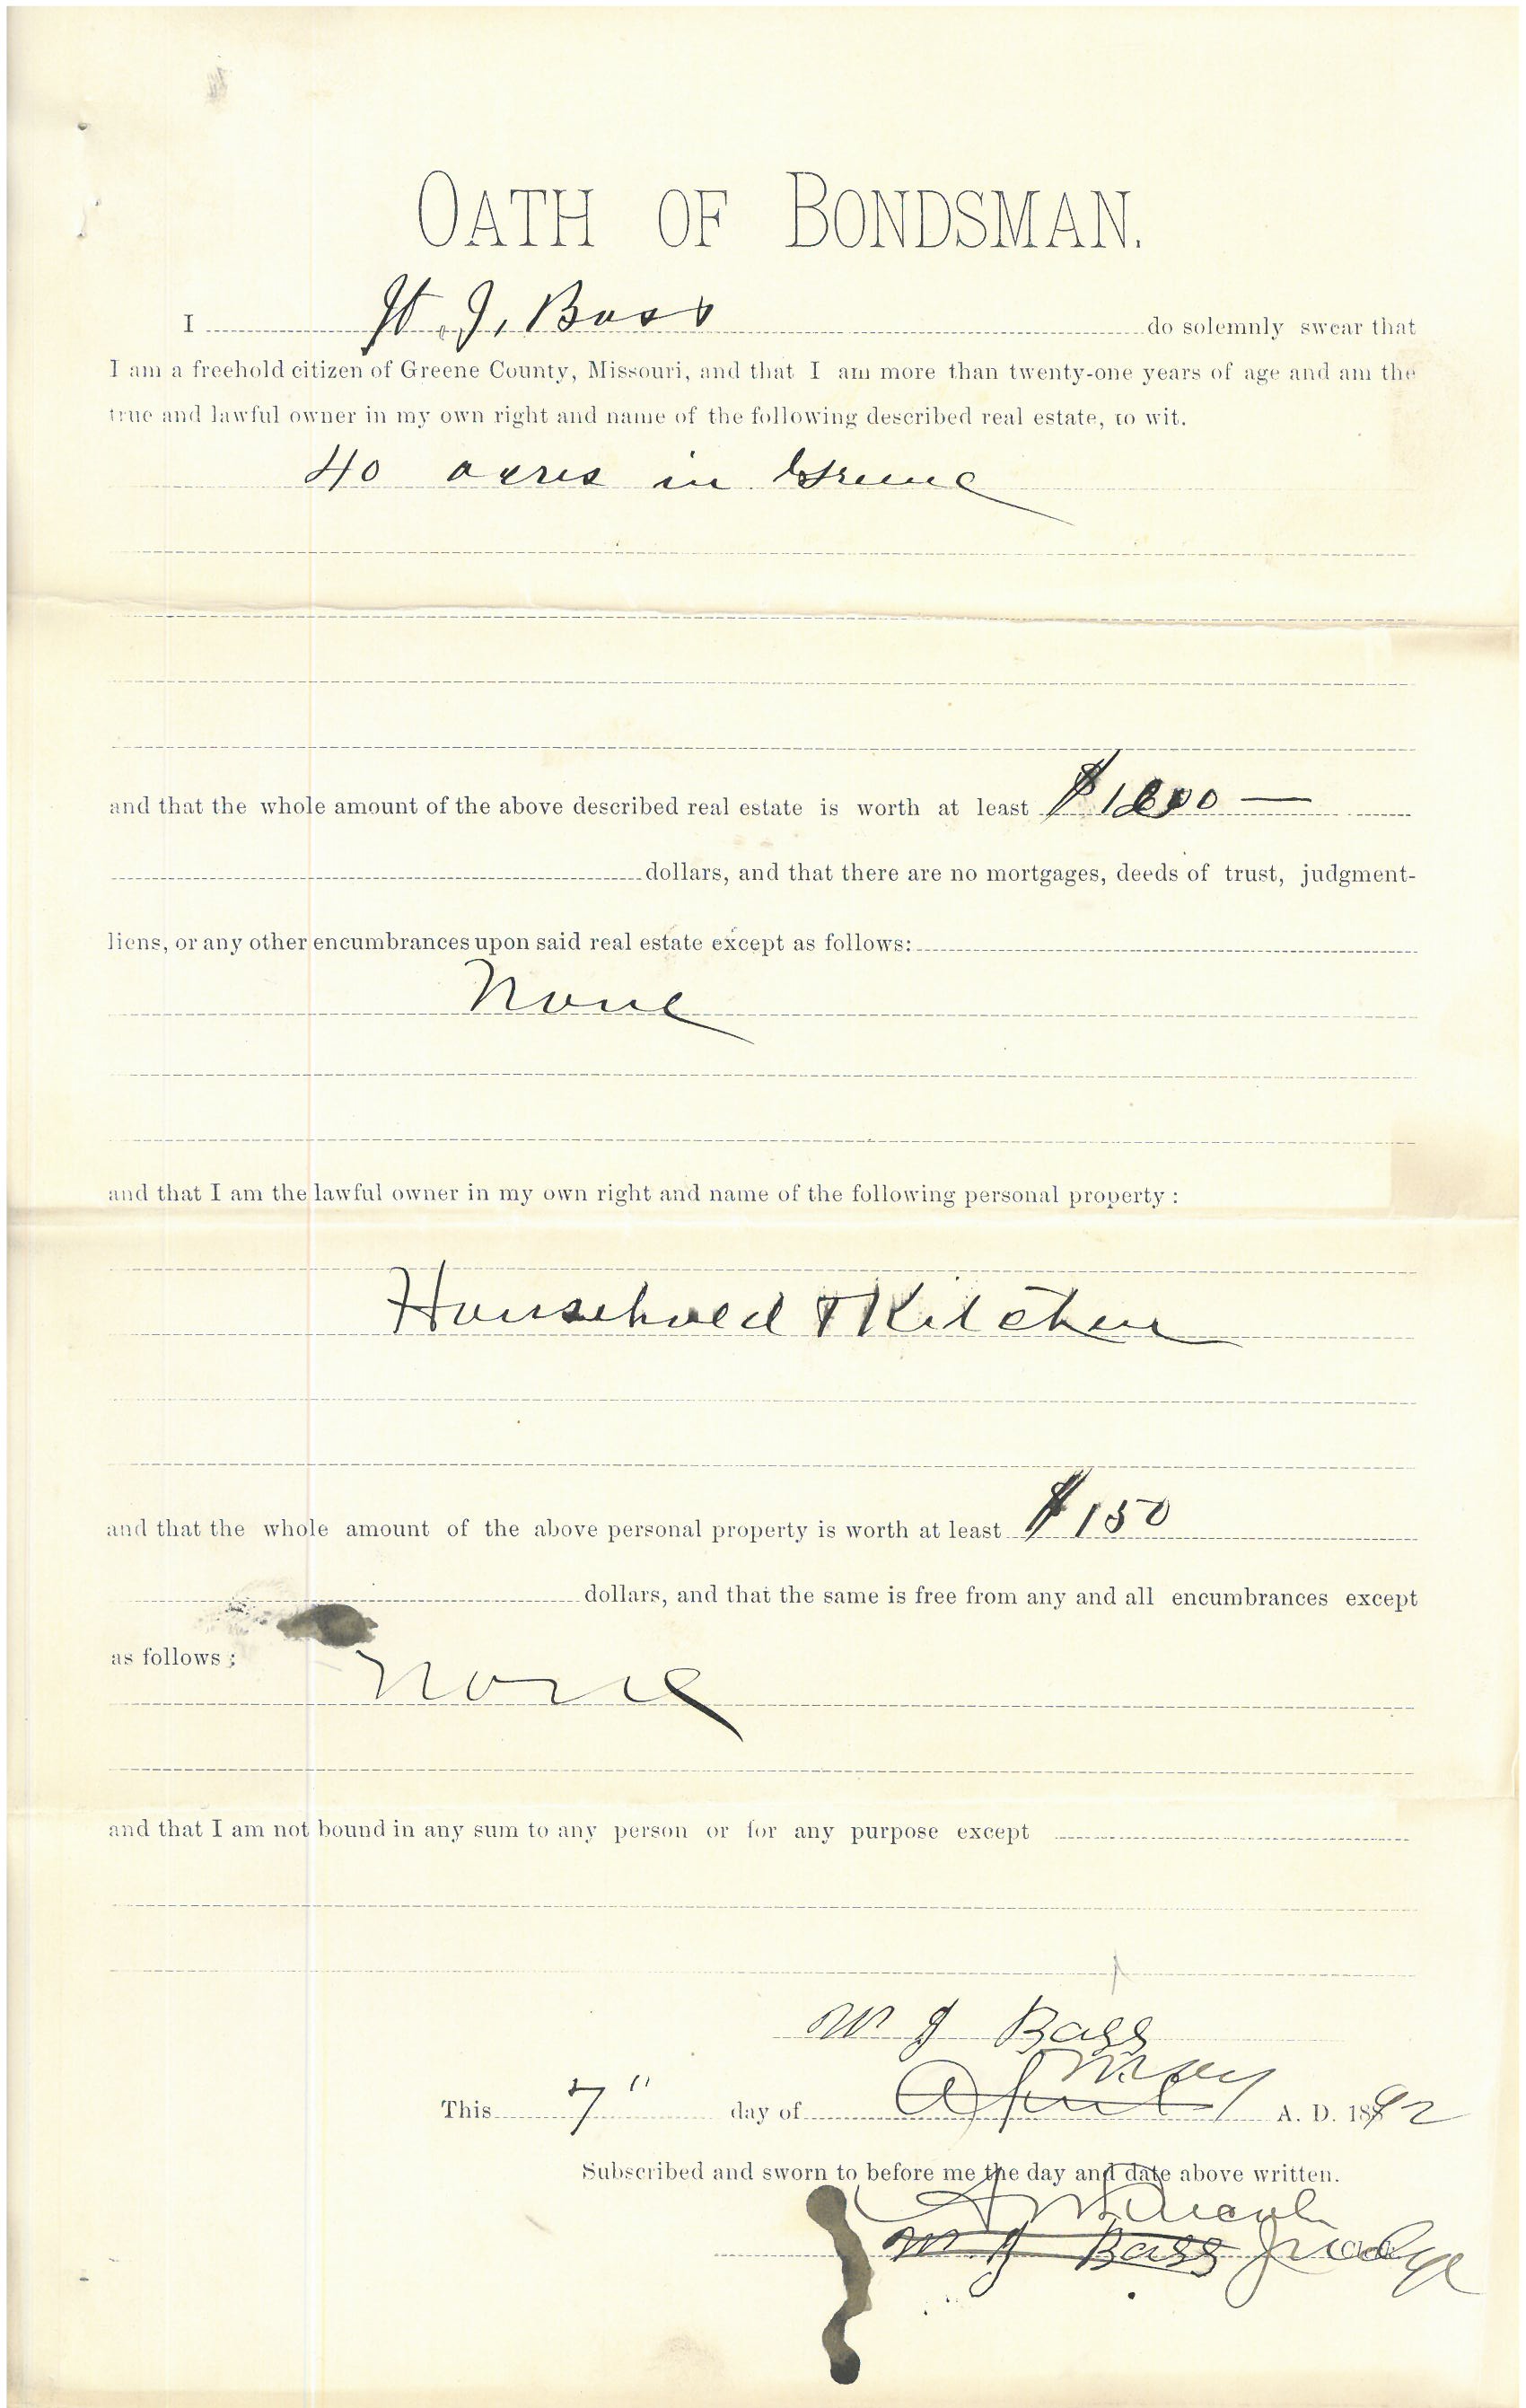 OATH OF BONDSMAN.
I J. Bass do solemnly swear that
I am a freehold citizen of Greene County, Missouri, and that I am more than twenty-one years of age and am the
true and lawful owner in my own right and name of the following described real estate, to wit.
40 acres in Greene
and that the whole amount of the above described real estate is worth at least
dollars, and that there are no mortgages, deeds of trust, judgment-
liens, or any other encumbrances upon said real estate except as follows:
None
and that I am the lawful owner in my own right and name of the following personal property :
Household & Kitchen
and that the whole amount of the above personal property is worth at least $ 150
dollars, and that the same is free from any and all encumbrances except
as follows :
None
and that I am not bound in any sum to any person or for any purpose except
M J Bass
May
This 7" day of April A. D. 1892
Subscribed and sworn to before me the day and date above written.
M. J Bass Judge